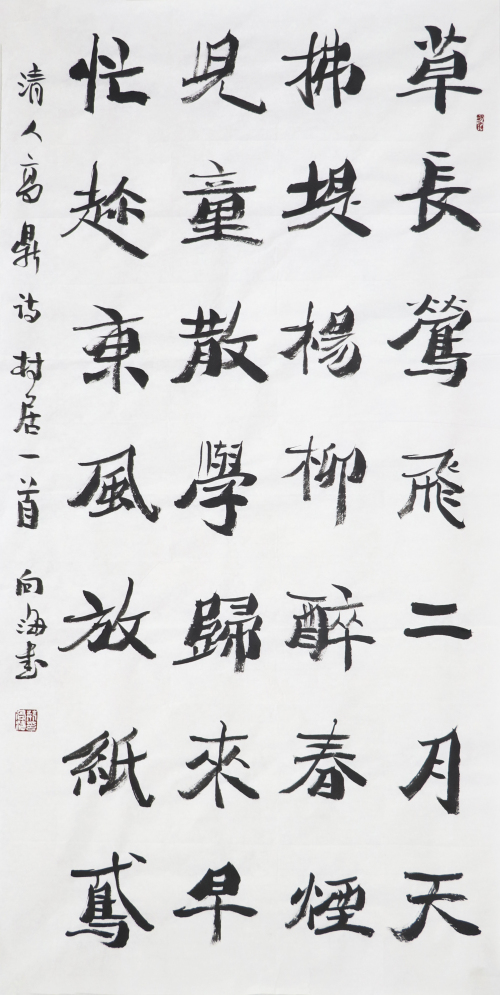 草長鶯飛二月天
拂堤楊柳醉春煙
兒童散學歸來早
忙趂東風放紙鳶
清人高鼎诗村居一首 向海书